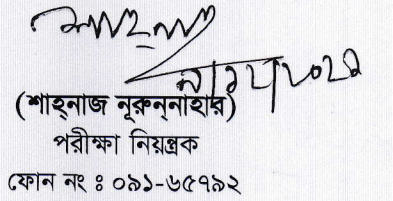 (শাহ্‌নাজ নূরুন্‌নাহার)
পরীক্ষা নিয়ন্ত্রক
ফোন নং ঃ ০৯১-৬৫৭৯২